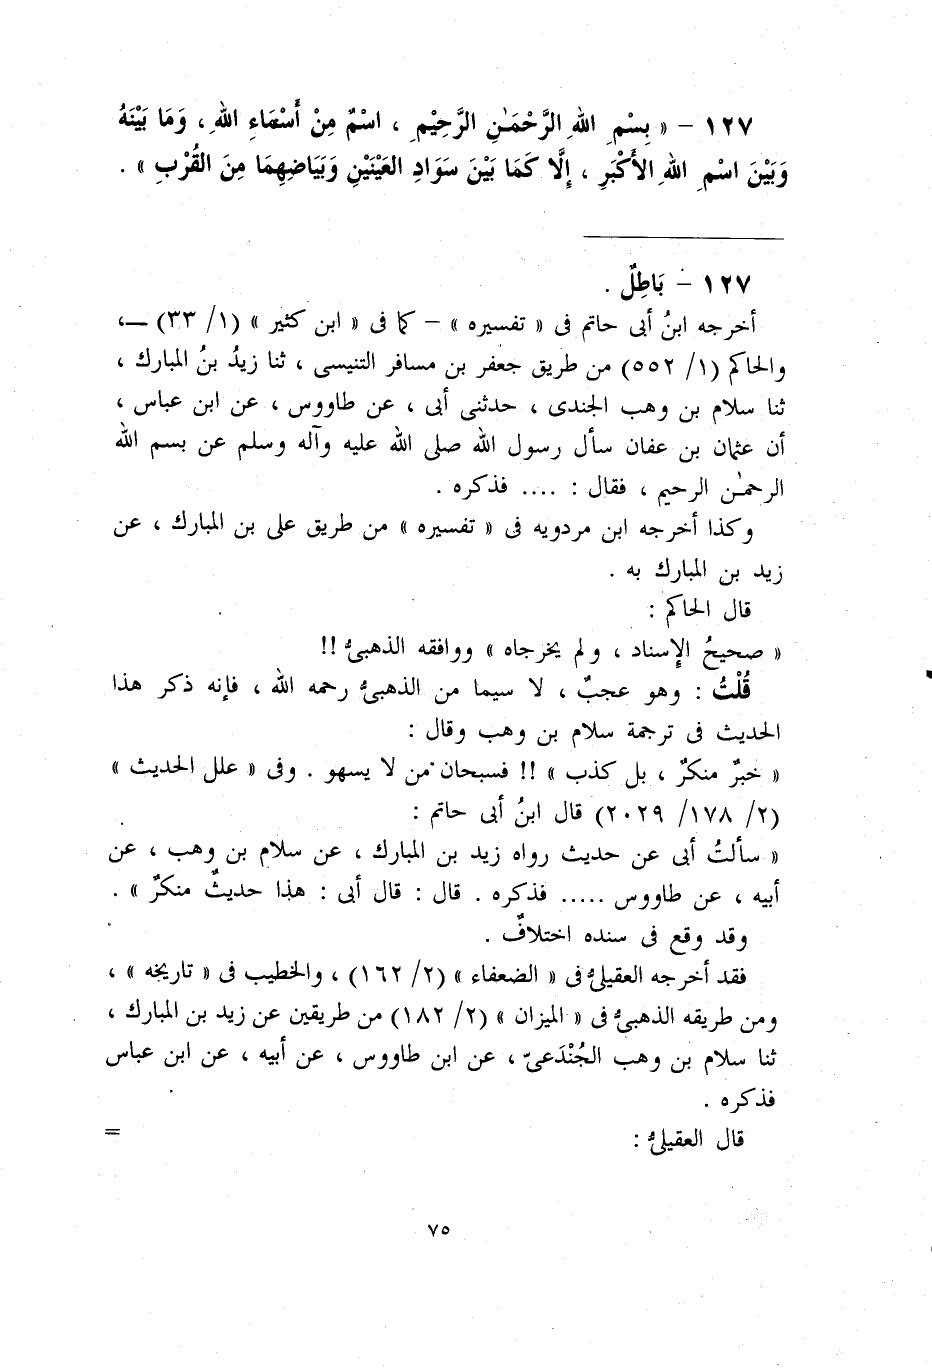 ١٢٧ – « بِسْمِ اللهِ الرَّحْمَـٰنِ الرَّحِيْمِ ، اسْمٌ مِنْ أَسْمَاءِ اللهِ ، وَمَا بَيْنَهُ
وَبَيْنَ اسْمِ اللهِ الأَكْبَرِ ، إِلَّا كَمَا بَيْنَ سَوَادِ العَيْنَيْنِ وَبَيَاضِهِمَا مِنَ القُرْبِ » .
١٢٧ – بَاطِلٌ .
أخرجه ابنُ أبى حاتم فى « تفسيره » – كما فى « ابن كثير » (١/ ٣٣) –،
والحاكم (١/ ٥٥٢) من طريق جعفر بن مسافر التنيسى ، ثنا زيدُ بنُ المبارك ،
ثنا سلام بن وهب الجندى ، حدثنى أبى ، عن طاووس ، عن ابن عباس ،
أن عثمان بن عفان سأل رسول الله صلى الله عليه وآله وسلم عن بسم الله
الرحمـٰن الرحيم ، فقال : .... فذكره .
وكذا أخرجه ابن مردويه فى « تفسيره » من طريق على بن المبارك ، عن
زيد بن المبارك به .
قال الحاكم :
« صحيحُ الإسناد ، ولم يخرجاه » ووافقه الذهبىُّ !!
قُلْتُ : وهو عجبٌ ، لا سيما من الذهبىِّ رحمه الله ، فإنه ذكر هذا
الحديث فى ترجمة سلام بن وهب وقال :
« خبرٌ منكرٌ ، بل كذب » !! فسبحان من لا يسهو . وفى « علل الحديث »
(٢/ ١٧٨/ ٢٠٢٩) قال ابنُ أبى حاتم :
« سألتُ أبى عن حديث رواه زيد بن المبارك ، عن سلام بن وهب ، عن
أبيه ، عن طاووس ..... فذكره . قال : قال أبى : هذا حديثٌ منكرٌ » .
وقد وقع فى سنده اختلافٌ .
فقد أخرجه العقيلىُّ فى « الضعفاء » (٢/ ١٦٢) ، والخطيب فى « تاريخه » ،
ومن طريقه الذهبىُّ فى « الميزان » (٢/ ١٨٢) من طريقين عن زيد بن المبارك ،
ثنا سلام بن وهب الجُنْدَعىّ ، عن ابن طاووس ، عن أبيه ، عن ابن عباس
فذكره .
قال العقيلىُّ :
=
٧٥